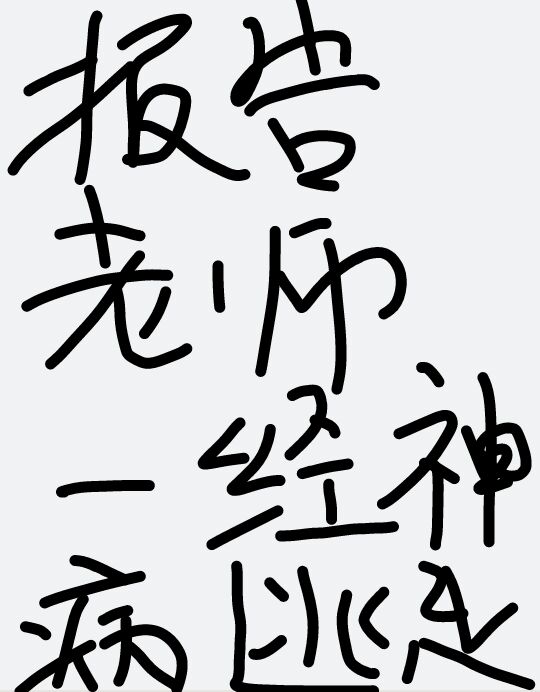 报告
老师
一经神
病逃走